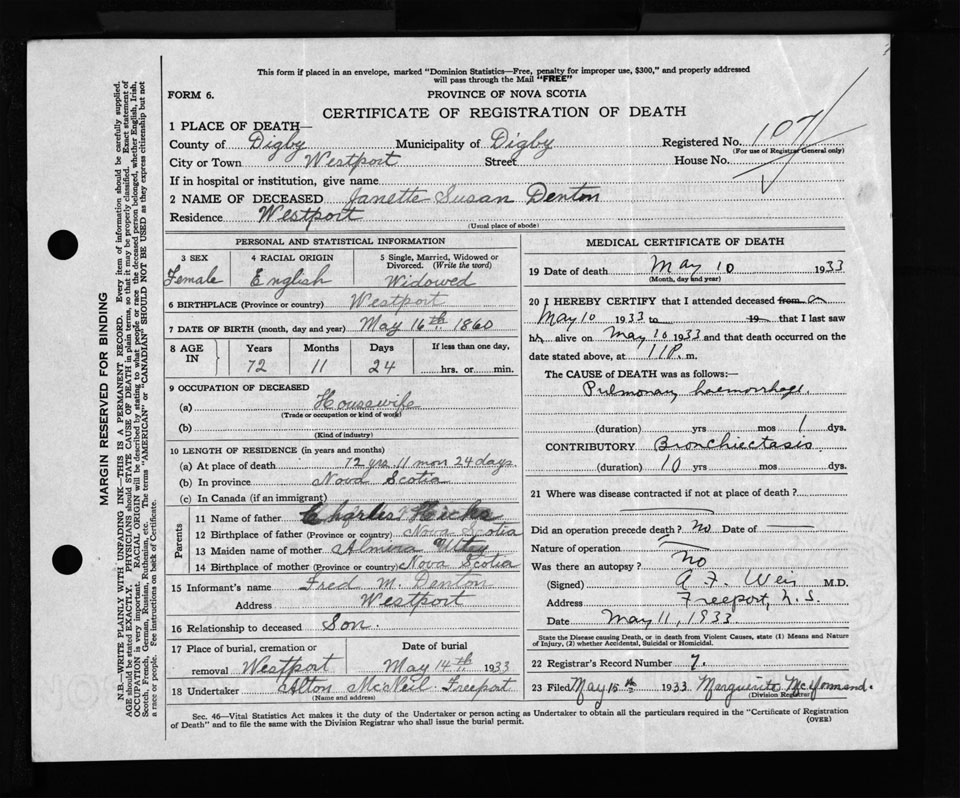 This form if placed in an envelope, marked "Dominion Statistics—Free, penalty for improper use, $300," and properly addressed
will pass through the Mail "FREE"
FORM 6.
PROVINCE OF NOVA SCOTIA
CERTIFICATE OF REGISTRATION OF DEATH
1 PLACE OF DEATH—
County of Digby Municipality of Digby Registered No. 107
(For use of Registrar General only)
City or Town Westport Street House No.
If in hospital or institution, give name
2 NAME OF DECEASED Janette Susan Denton
Residence Westport
(Usual place of abode)
PERSONAL AND STATISTICAL INFORMATION
3 SEX 4 RACIAL ORIGIN 5 Single, Married, Widowed or
Divorced. (Write the word)
Female English Widowed
6 BIRTHPLACE (Province or country) Westport
7 DATE OF BIRTH (month, day and year) May 16th 1860
8 AGE IN Years Months Days If less than one day,
72 11 24 hrs. or min.
9 OCCUPATION OF DECEASED
(a) Housewife
(Trade or occupation or kind of work)
(b)
(Kind of industry)
10 LENGTH OF RESIDENCE (in years and months)
(a) At place of death 72 yrs 11 mon 24 days.
(b) In province Nova Scotia
(c) In Canada (if an immigrant)
Parents
11 Name of father Charles Hicks
12 Birthplace of father (Province or country) Nova Scotia
13 Maiden name of mother Almira
14 Birthplace of mother (Province or country) Nova Scotia
15 Informant's name Fred M. Denton
Address Westport
16 Relationship to deceased Son.
17 Place of burial, cremation or Date of burial
removal Westport May 14th 1933
18 Undertaker Alton McNeil Freeport
(Name and address)
MEDICAL CERTIFICATE OF DEATH
19 Date of death May 10 1933
(Month, day and year)
20 I HEREBY CERTIFY that I attended deceased from on
May 10 1933 to 19 that I last saw
h alive on May 10 1933 and that death occurred on the
date stated above, at 11 P. m.
The CAUSE of DEATH was as follows:—
Pulmonary haemorrhage.
(duration) yrs mos 1 dys.
CONTRIBUTORY Bronchiectasis
(duration) 10 yrs mos dys.
21 Where was disease contracted if not at place of death?
Did an operation precede death? No Date of
Nature of operation
Was there an autopsy? No
(Signed) A. F. Weir M.D.
Address Freeport, N.S.
Date May 11, 1933
State the Disease causing Death, or in death from Violent Causes, state (1) Means and Nature
of Injury, (2) whether Accidental, Suicidal or Homicidal.
22 Registrar's Record Number 7.
23 Filed May 15th 1933 Marguerite McDormand.
(Division Registrar)
Sec. 46—Vital Statistics Act makes it the duty of the Undertaker or person acting as Undertaker to obtain all the particulars required in the "Certificate of Registration
of Death" and to file the same with the Division Registrar who shall issue the burial permit.
(OVER)
MARGIN RESERVED FOR BINDING
N.B.—WRITE PLAINLY WITH UNFADING INK—THIS IS A PERMANENT RECORD. Every item of information should be carefully supplied.
AGE should be stated EXACTLY. PHYSICIANS should STATE CAUSE OF DEATH in plain terms, so that it may be properly classified. Exact statement of
OCCUPATION is very important. RACIAL ORIGIN will be described by stating to what people or race the deceased person belonged, whether English, Irish,
Scotch, French, German, Russian, Ruthenian, etc. The terms "AMERICAN" or "CANADIAN" SHOULD NOT BE USED as they express citizenship but not
a race or people. See instructions on back of Certificate.